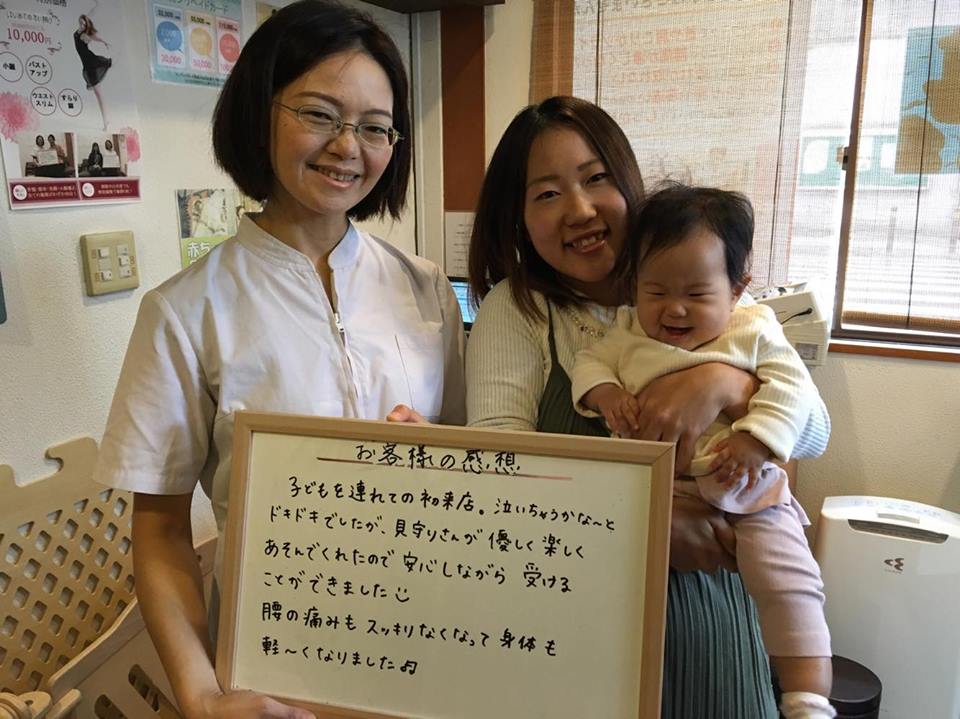 10,000円
小顔
バスト
アップ
ウエスト
スリム
すらり
脚
お客様の感想
子どもを連れての初来店。泣いちゃうかな〜と
ドキドキでしたが、見守りさんが優しく楽しく
あそんでくれたので安心しながら受ける
ことができました
腰の痛みもスッキリなくなって身体も
軽〜くなりました♫